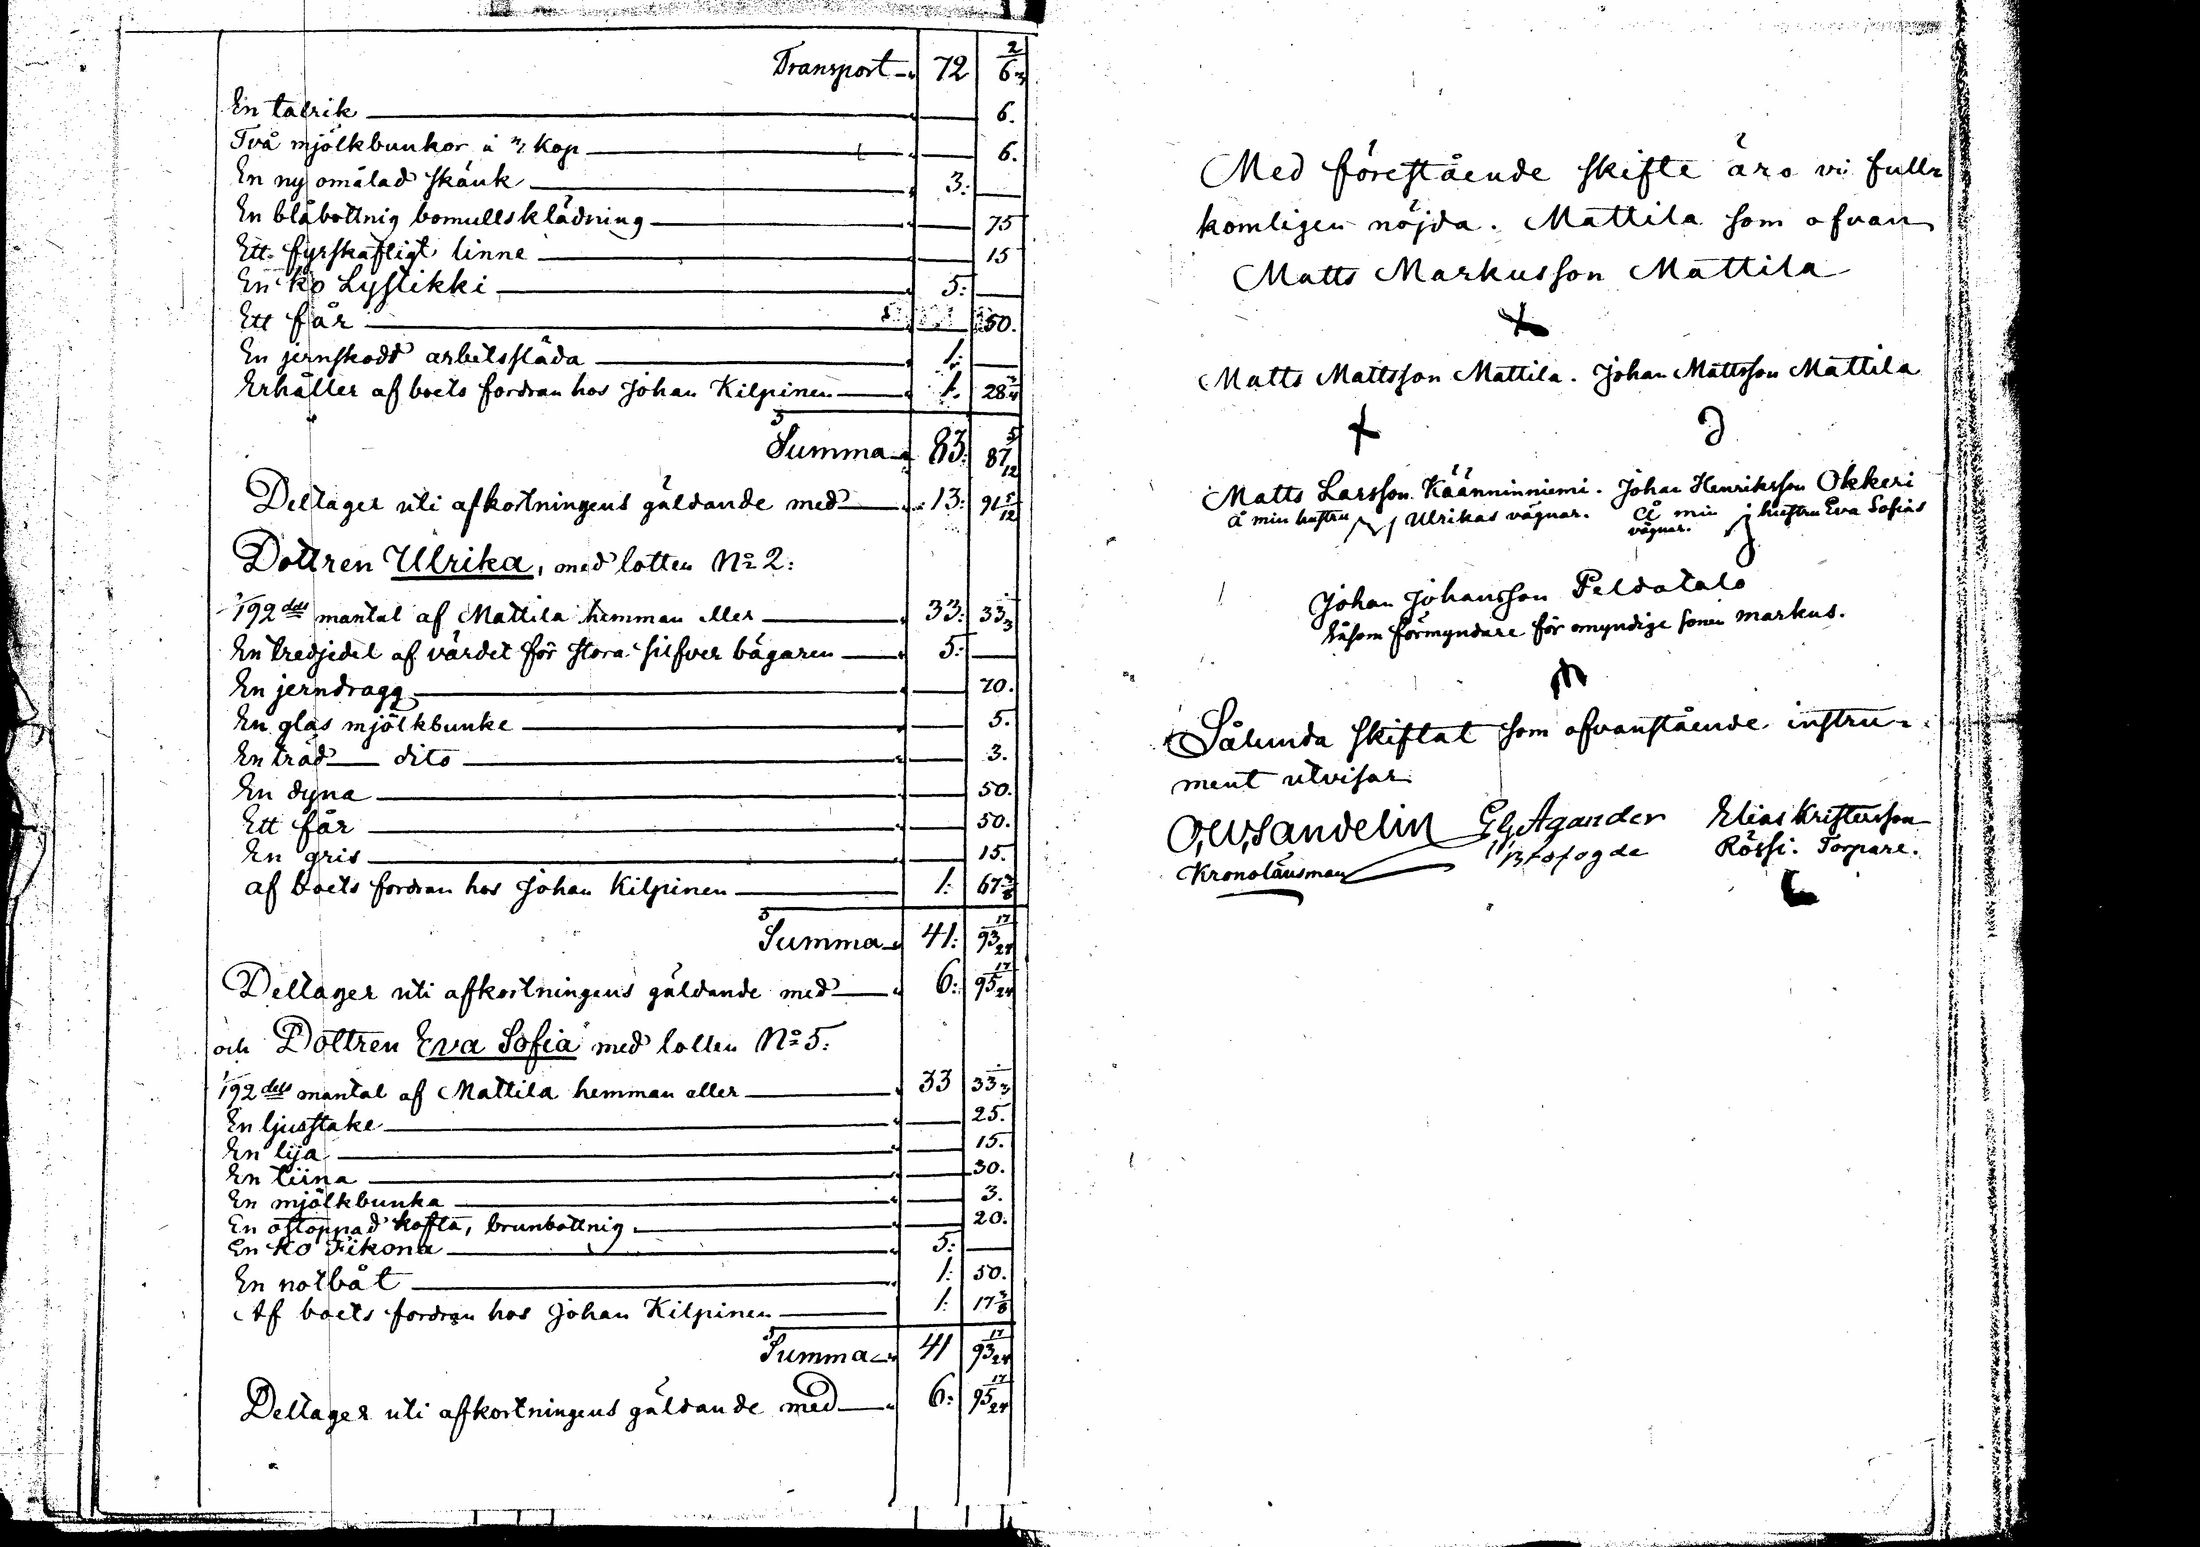 Transport 72 6 2/3
En talrik 6.
Två mjölkbunkor à 3 kop 6.
En ny omålad skänk 3:
En blåbottnig bomullsklädning 75
Ett fyrskaftigt linne 15
En ko Lystikki 5:
Ett får 50.
En jernskodd arbetssläda 1:
Erhåller af boets fordran hos Johan Kilpinen 1. 28 3/4
Summa 83: 87 5/12
Deltager uti afkortningens gäldande med 13: 91 5/12
Dottren Ulrika, med lotten No 2:
1/192 dels mantal af Mattila hemman eller 33: 33 1/3
En tredjedel af värdet för stora silfver bägaren 5:
En jerndragg 70.
En glas mjölkbunke 5.
En träd dito 3.
En dyna 50.
Ett får 50.
En gris 15.
af boets fordran hos Johan Kilpinen 1: 67 3/8
Summa 41: 93 17/24
Deltager uti afkortningens gäldande med 6: 95 17/24
och Dottren Eva Sofia med lotten No 5:
1/192 dels mantal af Mattila hemman eller 33 33 1/3
En ljusstake 25.
En lija 15.
En tiina 30.
En mjölkbunka 3.
En ostoppad kofta, brunbottnig 20.
En ko Fikona 5:
En notbåt 1: 50.
Af boets fordran hos Johan Kilpinen 1: 17 3/8
Summa 41 93 17/24
Deltager uti afkortningens gäldande med 6: 95 17/24
Med förestående skifte äro vi full-
komligen nöjda. Mattila som ofvan
Matts Markusson Mattila
Matts Mattsson Mattila. Johan Mattsson Mattila
Matts Larsson Käänninniemi. Johan Henriksson Okkeri
å min hustru Ulrikas vägnar. å min hustru Eva Sofias
vägnar.
Johan Johansson Peldotalo
såsom förmyndare för omyndige sonen Markus.
Sålunda skiftat som ofvanstående instru-
ment utvisar
O,W,Sandelin G G Agander Elias Kristersson
Kronolänsman Brofogde Rössi. Torpare.